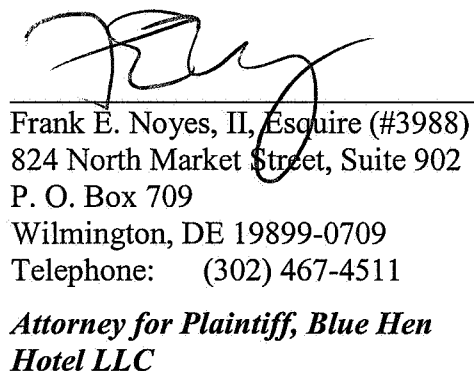 Frank E. Noyes, II, Esquire (#3988)
824 North Market Street, Suite 902
P. O. Box 709
Wilmington, DE 19899-0709
Telephone: (302) 467-4511
Attorney for Plaintiff, Blue Hen
Hotel LLC